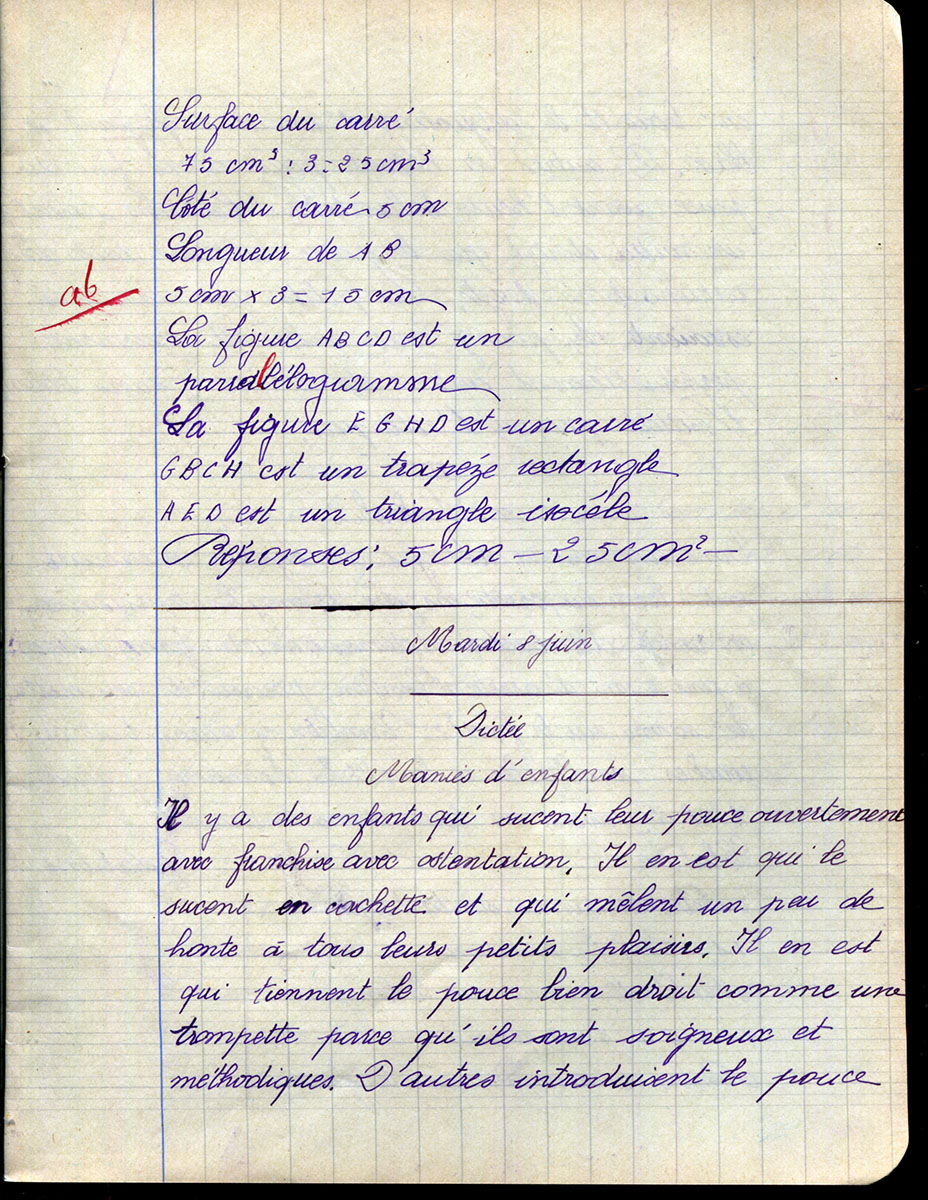 Surface du carré
75 cm³ : 3 = 25 cm³
Côté du carré 5 cm
Longueur de AB
ab
5 cm x 3 = 15 cm
La figure ABCD est un
parallélogramme
La figure EGHD est un carré
GBCH est un trapèze rectangle
AED est un triangle isocèle
Réponses : 5 cm — 25 cm² —
Mardi 8 juin
Dictée
Manies d'enfants
Il y a des enfants qui sucent leur pouce ouvertement
avec franchise avec ostentation. Il en est qui le
sucent en cachette et qui mêlent un peu de
honte à tous leurs petits plaisirs. Il en est
qui tiennent le pouce bien droit comme une
trompette parce qu'ils sont soigneux et
méthodiques. D'autres introduisent le pouce